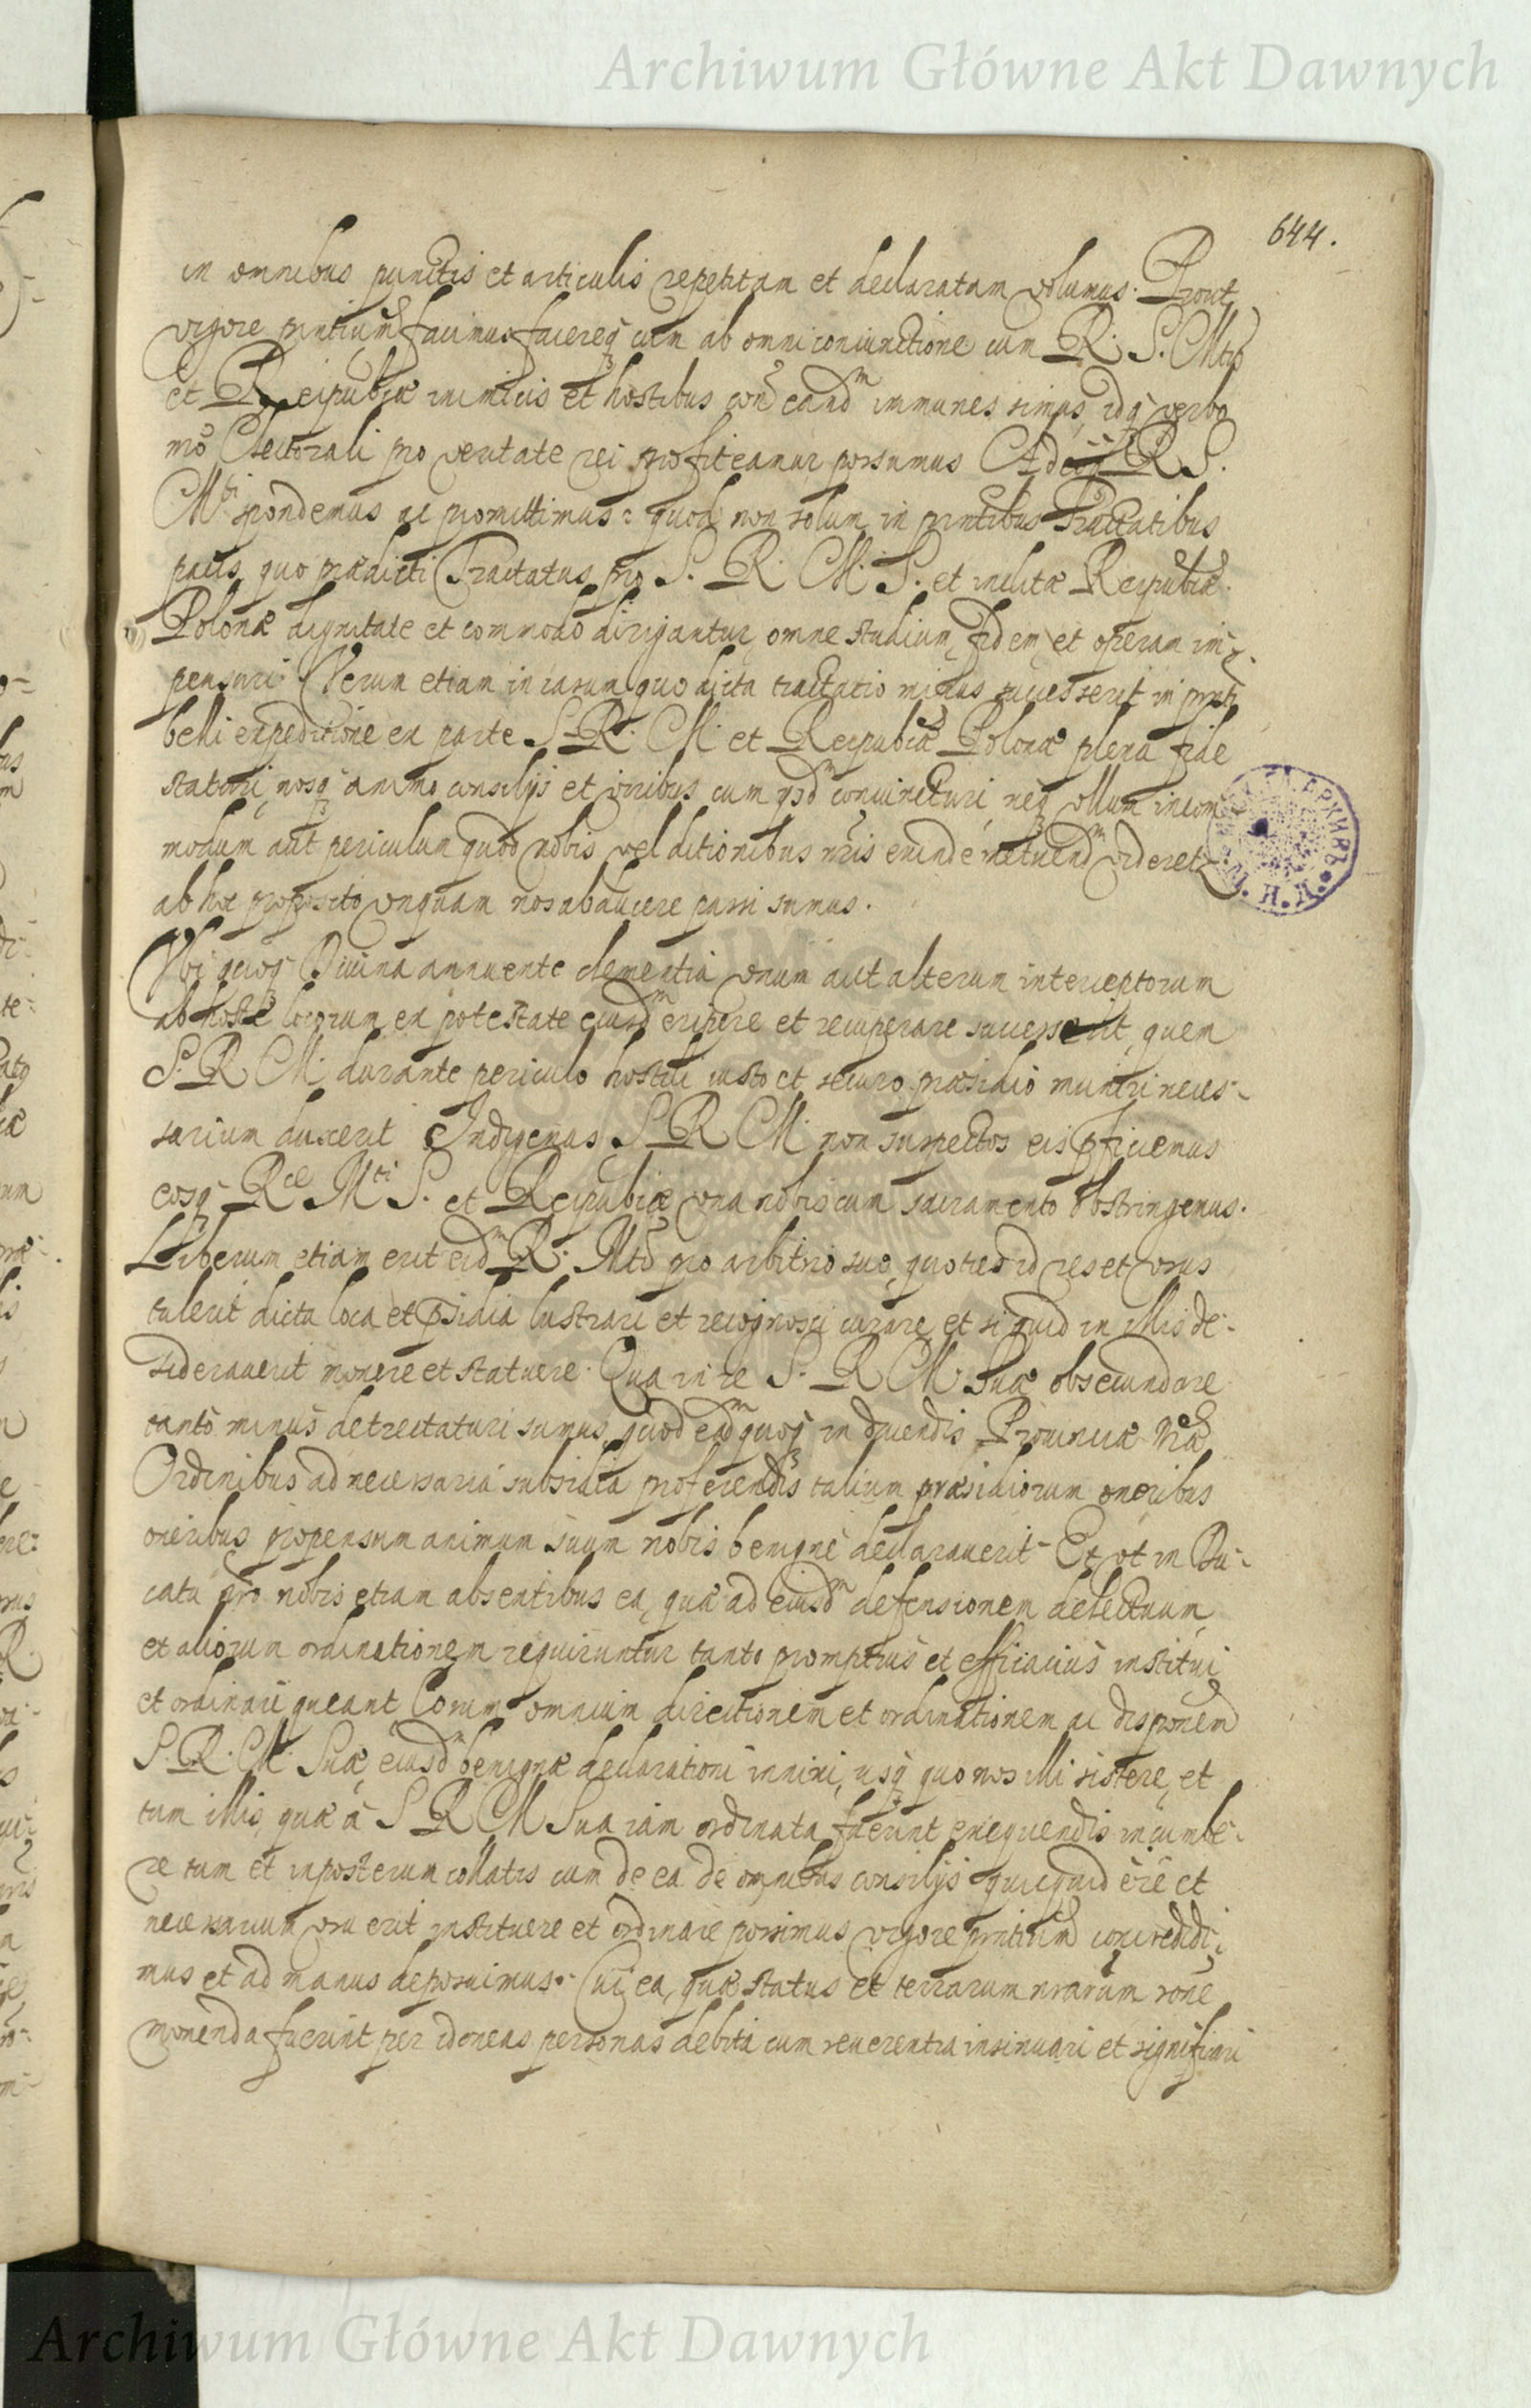 Archiwum Główne Akt Dawnych
644.
in omnibus punctis et articulis repetitam et declaratam volumus. Prout
vigore pntium facimus facereq cum ab omni coniunctione cum R. S. Mtis
et Reipublicæ inimicis et hostibus con eand^m immunes simus, idq verbo
mo Electorali pro veritate rei profiteamur possumus Adeoq R S.
M^ti spondemus ac promittimus: quod non solum in pntibus Tractatibus
pacis, quo prædicti Tractatus pro S. R. M. S. et inclitæ Reipublicæ
Polonæ dignitate et commodo dirigantur, omne studium, fidem, et operam im-
pensuri. Verum etiam in casum quo dicta tractatio minus successerit in pnti
belli expeditione ex parte S. R. M. et Reipublicæ Polonæ plena fide
staturi, nosq animo consilijs et viribus cum eisd^m coniuncturi, neq ullum incom-
modum aut periculum quod nobis vel ditionibus nris exinde metuend^m videretur
ab hoc proposito unquam nos abducere passi sumus.
Ubi quoq Divina annuente clementia unum aut alterum interceptorum
ab hoste locorum ex potestate eiusd^m eripere et recuperare successerit, quem
S. R. M. durante periculo hostili iusto et securo præsidio muniri neces-
sarium duxerit Indigenas S. R. M. non suspectos eis pficiemus
eosq R^æ M^ti S. et Reipublicæ una nobiscum sacramento obstringemus.
Liberum etiam erit eid^m R. Mti pro arbitrio suo, quoties id res et usus
tulerit dicta loca et psidia lustrari et recognosci curare, et si quid in illis de-
sideraverit monere et statuere. Qua in re S. R. M. Suæ obsecundare
tanto minus detrectaturi sumus, quod ead^m quoq in ducendis Provinciæ Nræ
Ordinibus ad necessaria subsidia proferendis talium præsidiorum oneribus
oneribus propensum animum suum nobis benigne declaraverit. Et ut in Du-
catu pro nobis etiam absentibus ea, quæ ad eiusd^m defensionem delectuum,
et aliorum ordinationem requiruntur tanto promptius et efficacius institui,
et ordinari queant Eorum omnium directionem et ordinationem ac disponend
S. R. M. Suæ, eiusd^m benignæ declarationi innixi, usq quo nos illi sistere, et
tum illis, quæ a S R M Sua iam ordinata fuerint exequendis incumbe-
re tum et inposterum collatis cum de ea de omnibus consilijs quicquid ere et
necessarium usu erit instituere et ordinare possimus vigore pntium concredidi-
mus et ad manus deposuimus. Cui ea, quæ status et terrarum nrarum rone
monenda fuerint per idoneas personas debita cum reverentia insinuari et significari
Archiwum Główne Akt Dawnych